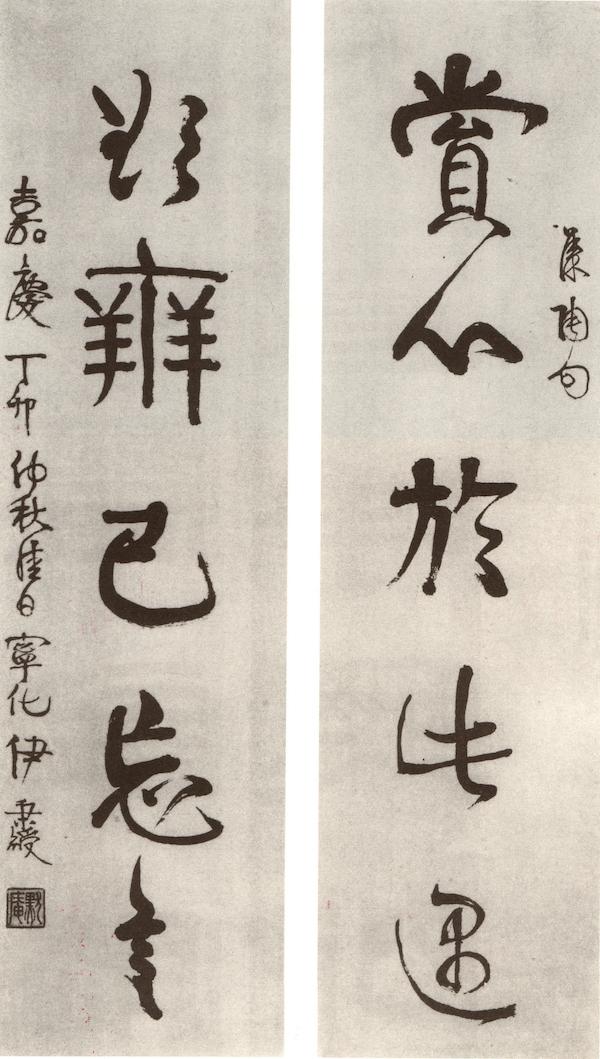 集陶句
賞心於此遇
欲辨已忘言
嘉慶丁卯仲秋佳日寧化伊秉綬
默庵